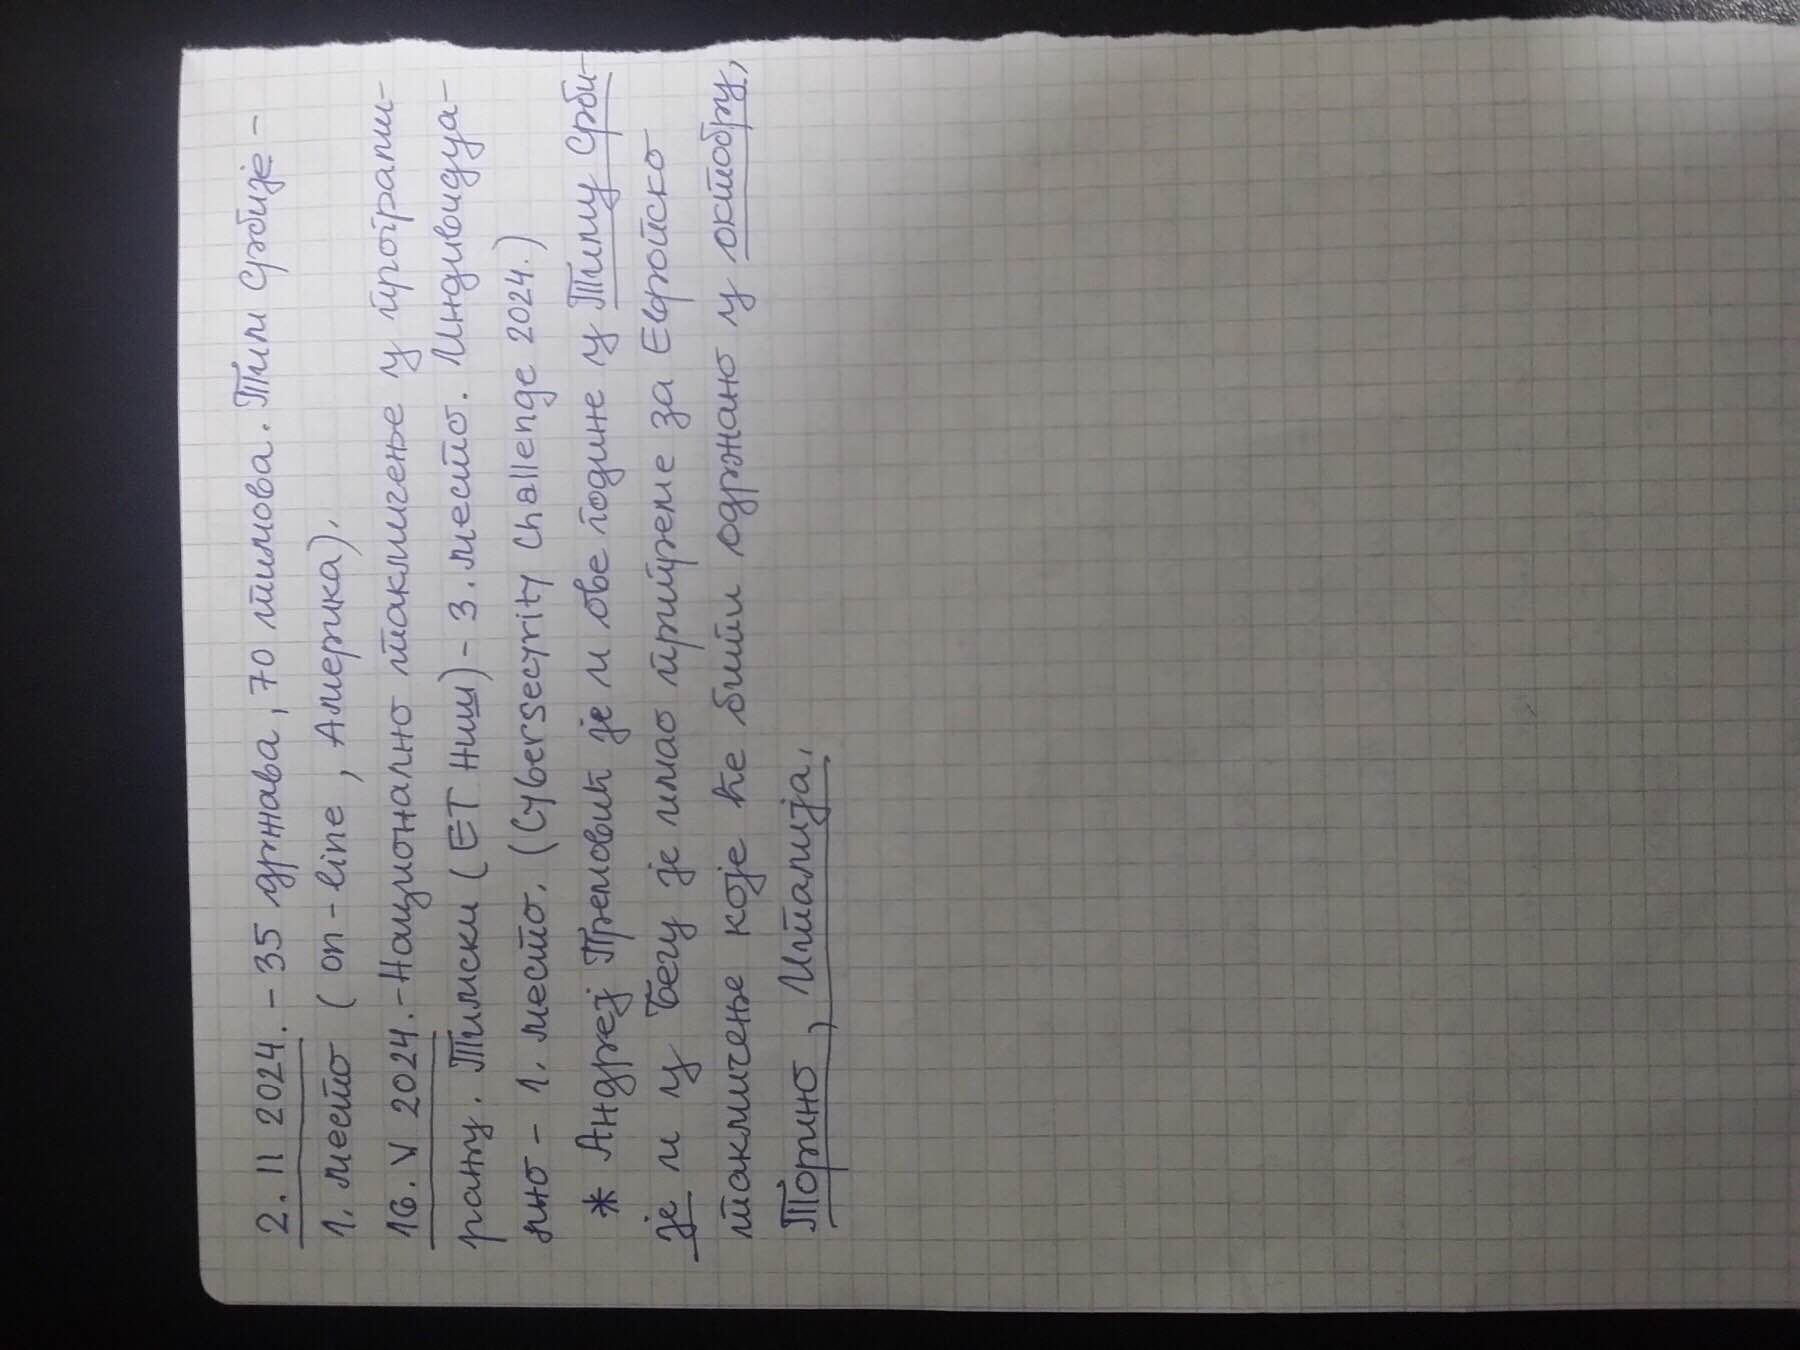 2. II 2024. - 35 држава, 70 тимова. Тим Србије -
1. место (on-line, Америка).
16. V 2024. - Национално такмичење у програми-
рању. Тимски (ЕТ Ниш) - 3. место. Индивидуа-
лно - 1. место. (Cybersecyrity Challenge 2024.)
* Андреј Премовић је и ове године у Тиму Срби-
је и у Бечу је имао припреме за Европско
такмичење које ће бити одржано у октобру,
Торино, Италија.